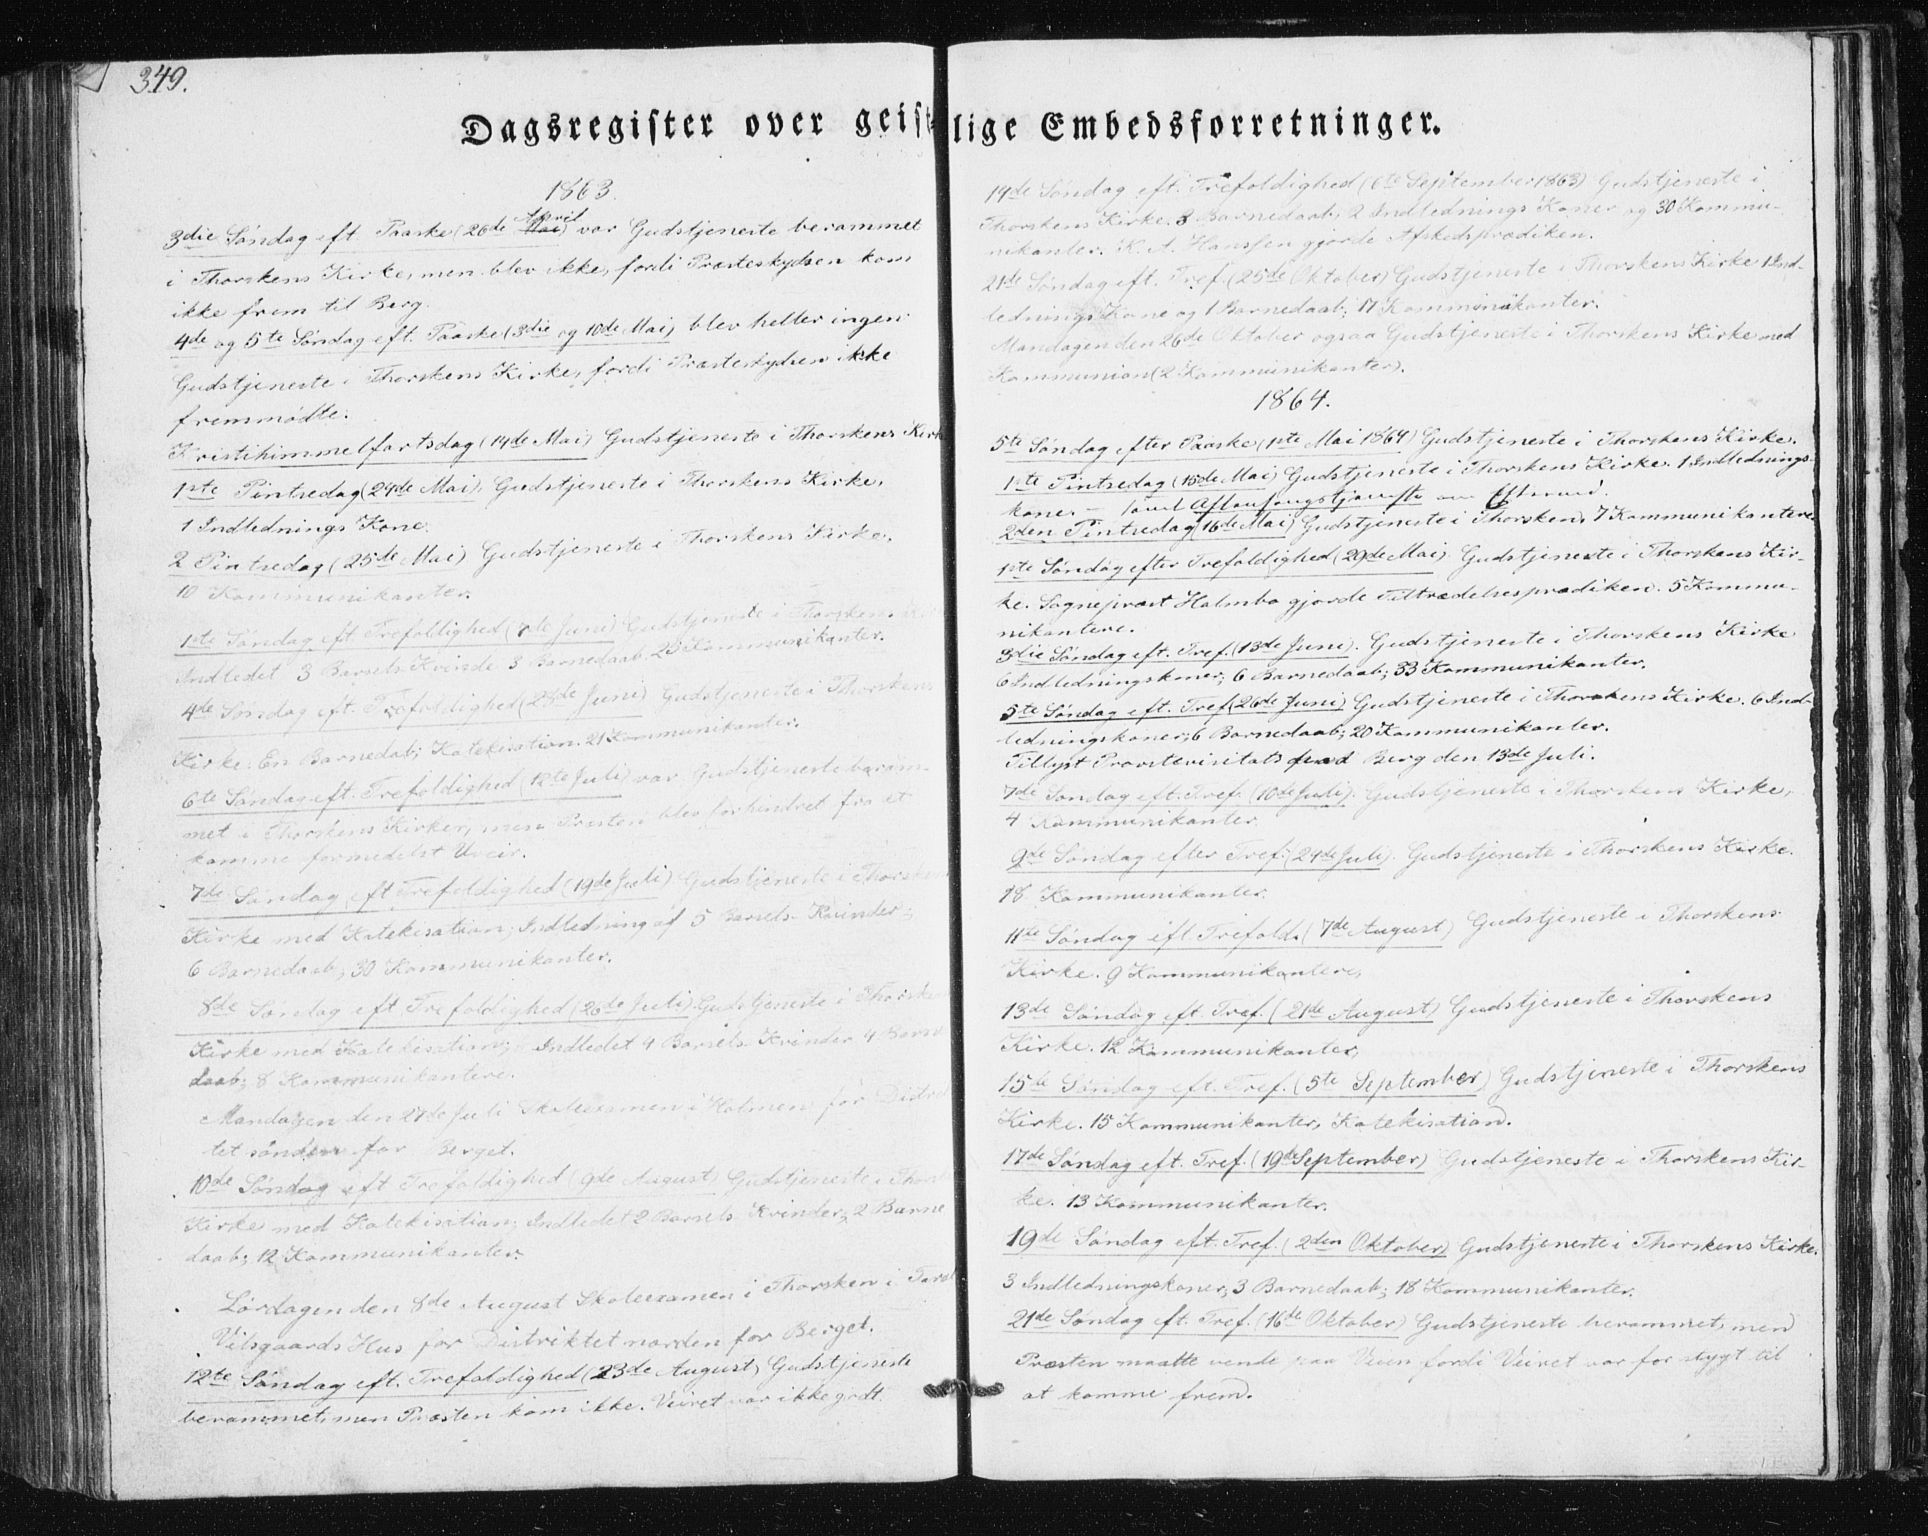 349.
Dagsregister over geistlige Embedsforretninger.
1863.
3die Søndag eft Paaske (26de April) var Gudstjeneste berammet
i Thorskens Kirke, men blev ikke, fordi Præsteskydsen kom
ikke frem til Berg.
4de og 5te Søndag eft. Paaske (3die og 10de Mai) blev heller ingen
Gudstjeneste i Thorskens Kirke, fordi Præsteskydsen ikke
fremmødte.
Kristihimmelfartsdag (14de Mai) Gudstjeneste i Thorskens Kirke
1ste Pintsedag (24de Mai), Gudstjeneste i Thorskens Kirke,
1 Indlednings Kone.
2 Pintsedag (25de Mai) Gudstjeneste i Thorskens Kirke,
10 Kommunikanter.
1ste Søndag eft Trefoldighed (7de Juni) Gudstjeneste i Thorskens
Indledet 3 Barsels Kvinde 3 Barnedaab. 23 Kommunikanter.
4de Søndag eft. Trefoldighed (28de Juni) Gudstjeneste i Thorskens
Kirke. En Barnedaab; Katekisation. 21 Kommunikanter.
6te Søndag eft. Trefoldighed (12te Juli) var Gudstjeneste beram-
met i Thorskens Kirke, men Præsten blev forhindret fra at
komme formedelst Uveir.
7de Søndag eft Trefoldighed (19de Juli) Gudstjeneste i Thorskens
Kirke med Katekisation; Indledning af 5 Barsels-Kvinder;
6 Barnedaab; 30 Kommunikanter.
8de Søndag eft Trefoldighed (26de Juli) Gudstjeneste i Thorskens
Kirke med Katekisation; Indledet 4 Barsels Kvinder 4 Barne
daab; 8 Kommunikantere.
Mandagen den 27de Juli Skoleexamen i Holmen for Distrik
tet sønden for Berget.
10de Søndag eft Trefoldighed (9de August) Gudstjeneste i Thorsk
Kirke med Katekisation; Indledet 2 Barsels Kvinder, 2 Barne
daab; 12 Kommunikanter.
Lørdagen den 8de August Skoleexamen i Thorsken i
Vilsgaards Hus for Distriktet norden for Berget.
12te Søndag eft. Trefoldighed (23de August) Gudstjeneste
berammet, men Præsten kom ikke. Veiret var ikke godt.
14de Søndag eft. Trefoldighed (6te September 1863) Gudstjeneste i
Thorskens Kirke. 3 Barnedaab, 2 Indlednings Koner og 30 Kommu-
nikanter. K. A. Hanssen gjorde Afskedsprædiken.
21de Søndag eft. Tref. (25de Oktober) Gudstjeneste i Thorskens Kirke 1 Ind-
lednings Kone og 1 Barnedaab; 17 Kommunikanter.
Mandagen den 26de Oktober ogsaa Gudstjeneste i Thorskens Kirke med
Kommunion (2 Kommunikanter).
1864.
5te Søndag efter Paaske (1ste Mai 1864) Gudstjeneste i Thorskens Kirke.
1ste Pintsedag (15de Mai) Gudstjeneste i Thorskens Kirke. 1 Indlednings-
kone. – samt Aftensangstjeneste om Efterm.
2den Pintsedag (16de Mai) Gudstjeneste i Thorsken, 7 Kommunikantere
1ste Søndag efter Trefoldighed (29de Mai) Gudstjeneste i Thorskens Kir-
ke. Sognepræst Holmbo gjorde Tiltrædelsesprædiken. 5 Kommu-
nikantere.
3die Søndag eft. Tref. (13de Juni). Gudstjeneste i Thorskens Kirke
6 Indledningskoner; 6 Barnedaab; 33 Kommunikanter.
5te Søndag eft. Tref (26de Juni) Gudstjeneste i Thorskens Kirke. 6 Ind-
ledningskoner; 6 Barnedaab; 20 Kommunikanter.
Tillyst Provstevisitats paa Berg den 13de Juli.
7de Søndag eft. Tref. (10de Juli). Gudstjeneste i Thorskens Kirke,
4 Kommunikanter.
9de Søndag efter Tref. (24de Juli). Gudstjeneste i Thorskens Kirke.
18 Kommunikanter.
11te Søndag eft. Trefold. (7de August) Gudstjeneste i Thorskens
Kirke. 9 Kommunikantere,
13de Søndag eft. Tref. (21de August) Gudstjeneste i Thorskens
Kirke. 12 Kommunikanter,
15de Søndag eft. Tref. (5te September) Gudstjeneste i Thorskens
Kirke. 15 Kommunikanter, Katekisation.
17de Søndag eft. Tref. (19de September) Gudstjeneste i Thorskens Kir-
ke. 13 Kommunikanter.
19de Søndag eft. Tref. (2den Oktober) Gudstjeneste i Thorskens Kirke.
3 Indledningskoner; 3 Barnedaab; 18 Kommunikanter.
21de Søndag eft. Tref. (16de Oktober) Gudstjeneste berammet, men
Præsten maatte vende paa Veien fordi Veiret var for stygt til
at komme frem.